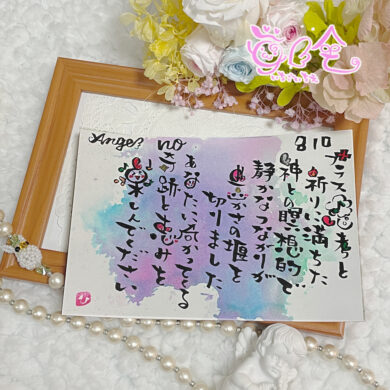 Angel NO 810
プラス思考と
祈りに満ちた
神との瞑想的で
静かなつながりが
豊かさの堰を
切りました
あなたに向かってくる
奇跡と恵みを
楽しんでください